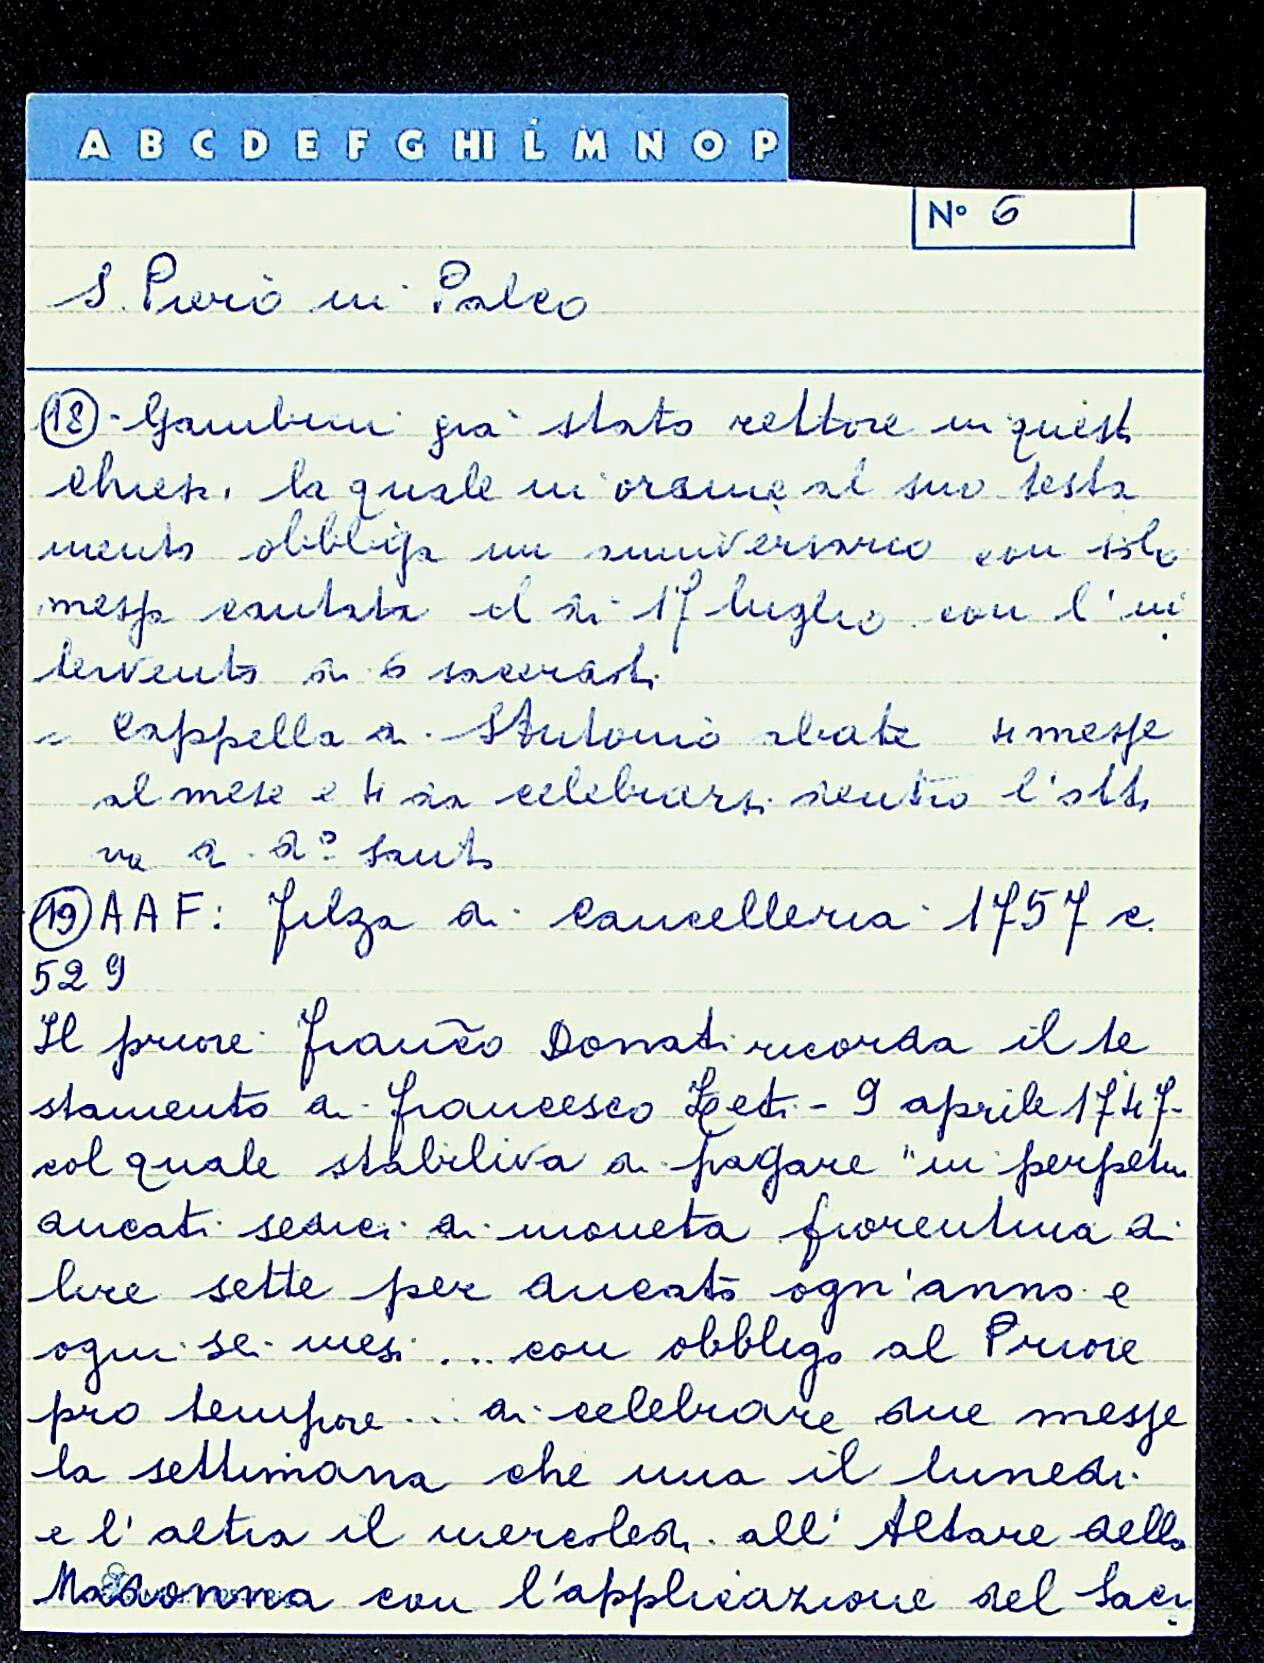 A B C D E F G HI L M N O P
Nº 6
S. Piero in Palco
(18) - Gamberini già stato rettore in quest
chiesa. la quale in ordine al suo testa
mento obbliga un anniversario con sola
messa cantata il dì 17 luglio con l'in
tervento di 6 sacerdoti.
- Cappella di S Antonio abate 4 messe
al mese e 4 da celebrarsi dentro l'otta
va di dº santo
(19) AAF: Filza di cancelleria 1757 c.
529
Il priore Franco Donati ricorda il te
stamento di Francesco Zeti - 9 aprile 1747-
col quale stabiliva di pagare "in perpetuo
ducati sedici di moneta fiorentina di
lire sette per ducato ogn'anno e
ogni sei mesi ... con obbligo al Priore
pro tempore ... di celebrare due messe
la settimana che una il lunedì
e l'altra il mercoledì all'Altare della
Madonna con l'applicazione del Sacri